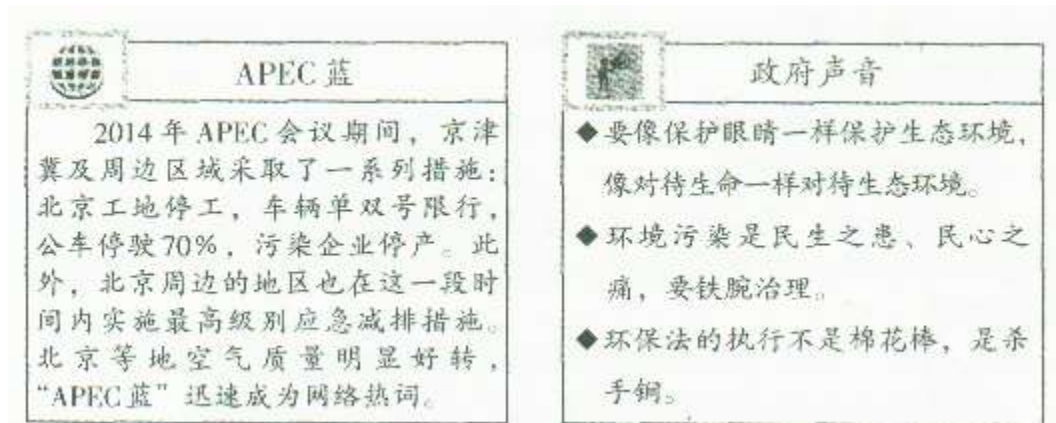 APEC 蓝
2014 年 APEC 会议期间，京津
冀及周边区域采取了一系列措施：
北京工地停工，车辆单双号限行，
公车停驶70%，污染企业停产。此
外，北京周边的地区也在这一段时
间内实施最高级别应急减排措施。
北京等地空气质量明显好转，
“APEC蓝”迅速成为网络热词。
政府声音
◆要像保护眼睛一样保护生态环境，
像对待生命一样对待生态环境。
◆环境污染是民生之患、民心之
痛，要铁腕治理。
◆环保法的执行不是棉花棒，是杀
手锏。